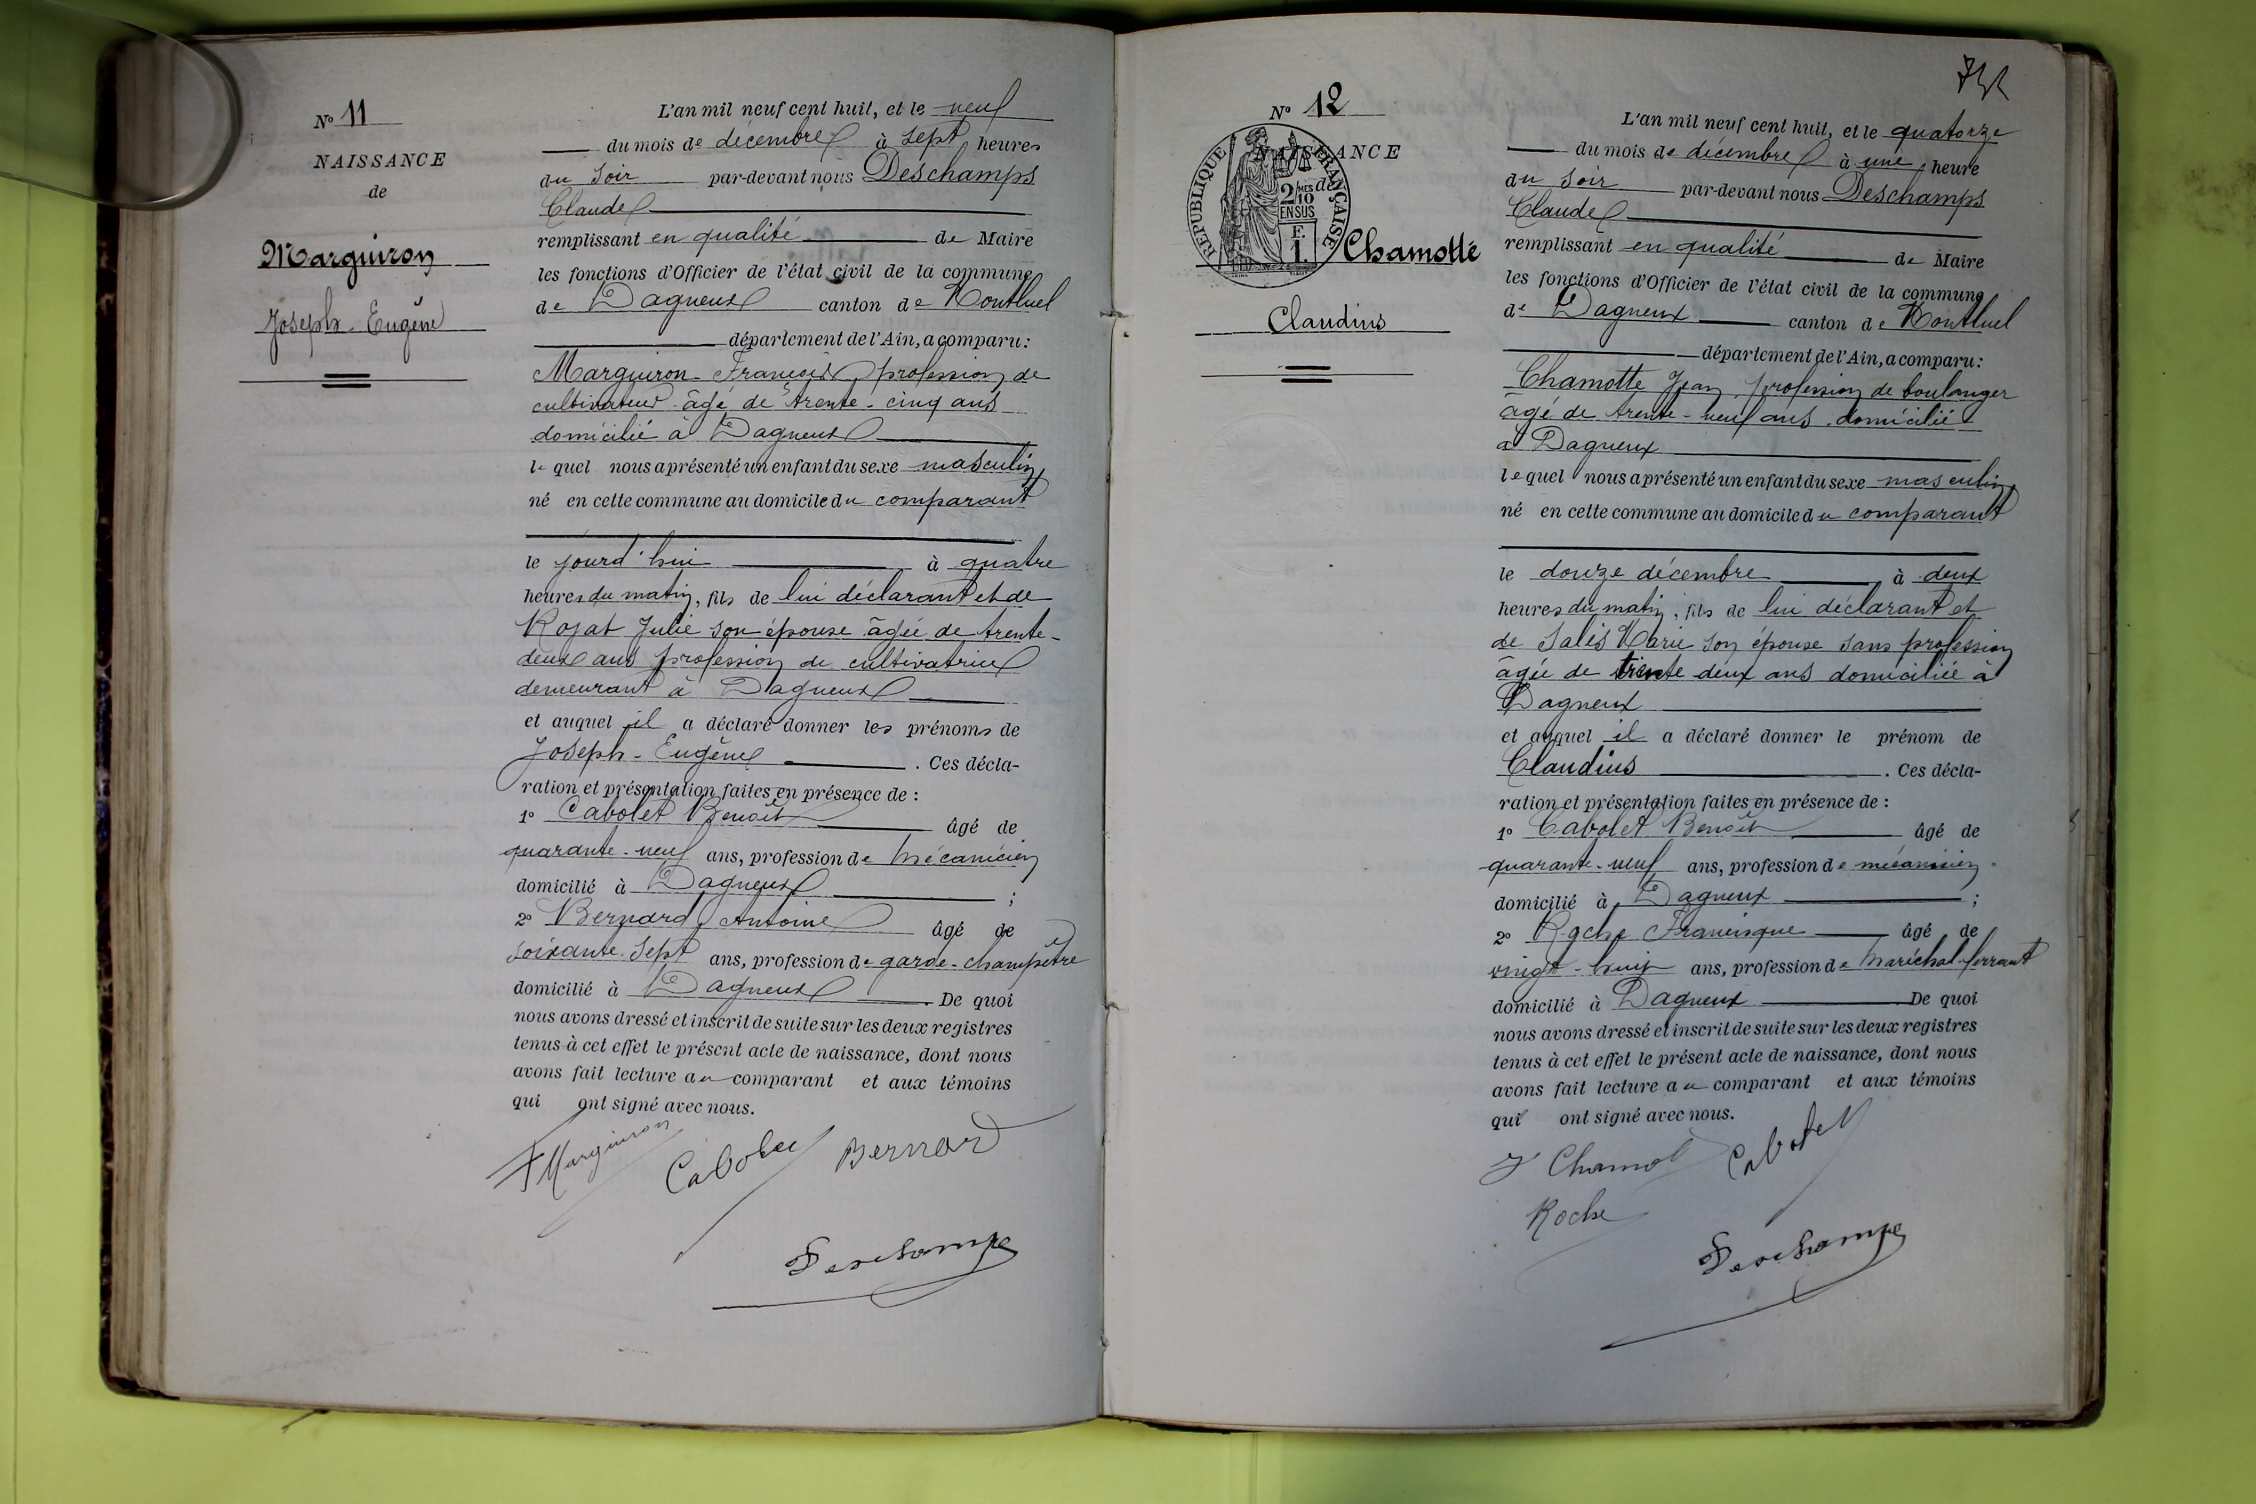 No 11
NAISSANCE
de
Marguiron
Joseph Eugène
L'an mil neuf cent huit, et le neuf
du mois de décembre à sept heures
du soir par-devant nous Deschamps
Claude
remplissant en qualité de Maire
les fonctions d'Officier de l'état civil de la commune
de Dagneux canton de Montluel
département de l'Ain, a comparu :
Marguiron François profession de
cultivateur âgé de trente-cinq ans
domicilié à Dagneux
lequel nous a présenté un enfant du sexe masculin,
né en cette commune au domicile du comparant
le jourd'hui à quatre
heures du matin, fils de lui déclarant et de
Rojat Julie son épouse âgée de trente-
deux ans profession de cultivatrice
demeurant à Dagneux
et auquel il a déclaré donner les prénoms de
Joseph-Eugène . Ces décla-
ration et présentation faites en présence de :
1o Cabolet Benoît âgé de
quarante-neuf ans, profession de mécanicien
domicilié à Dagneux ;
2o Bernard Antoine âgé de
soixante-sept ans, profession de garde-champêtre
domicilié à Dagneux De quoi
nous avons dressé et inscrit de suite sur les deux registres
tenus à cet effet le présent acte de naissance, dont nous
avons fait lecture au comparant et aux témoins
qui ont signé avec nous.
F Marguiron Cabolet Bernard
Deschamps
No 12
NAISSANCE
de
RÉPUBLIQUE FRANÇAISE
2/10MES
EN SUS
F.
1.
Chamotte
Claudius
L'an mil neuf cent huit, et le quatorze
du mois de décembre à une heure
du soir par-devant nous Deschamps
Claude
remplissant en qualité de Maire
les fonctions d'Officier de l'état civil de la commune
de Dagneux canton de Montluel
département de l'Ain, a comparu :
Chamotte Jean, profession de boulanger
âgé de trente-neuf ans, domicilié
à Dagneux
lequel nous a présenté un enfant du sexe masculin,
né en cette commune au domicile du comparant
le douze décembre à deux
heures du matin, fils de lui déclarant et
de Salès Marie son épouse sans profession
âgée de trente deux ans domiciliée à
Dagneux
et auquel il a déclaré donner le prénom de
Claudius . Ces décla-
ration et présentation faites en présence de :
1o Cabolet Benoît âgé de
quarante-neuf ans, profession de mécanicien
domicilié à Dagneux ;
2o Roche Francisque âgé de
vingt-huit ans, profession de maréchal-ferrant
domicilié à Dagneux De quoi
nous avons dressé et inscrit de suite sur les deux registres
tenus à cet effet le présent acte de naissance, dont nous
avons fait lecture au comparant et aux témoins
qui ont signé avec nous.
J Chamot Cabolet
Roche
Deschamps